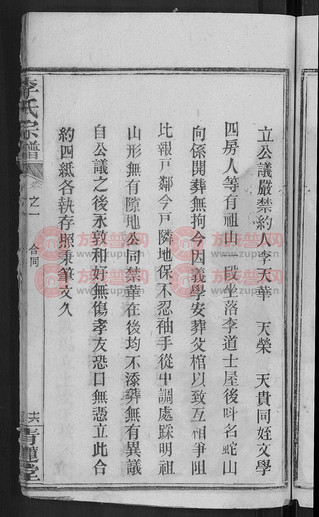 立公議嚴禁約人李天華　天榮　天貴同姪文學
四房人等有祖山一段坐落李道士屋後呌名蛇山
向係開葬無拘今因義學安葬父棺以致互相爭阻
比報戶鄰今戶隣地保不忍袖手從中調處踩明祖
山形無有隙地公同禁華在後均不添葬無有異議
自公議之後永敦和好無傷孝友恐口無憑立此合
約四紙各執存據秉筆文久
李氏宗譜
之一
合同
十六
青蓮堂